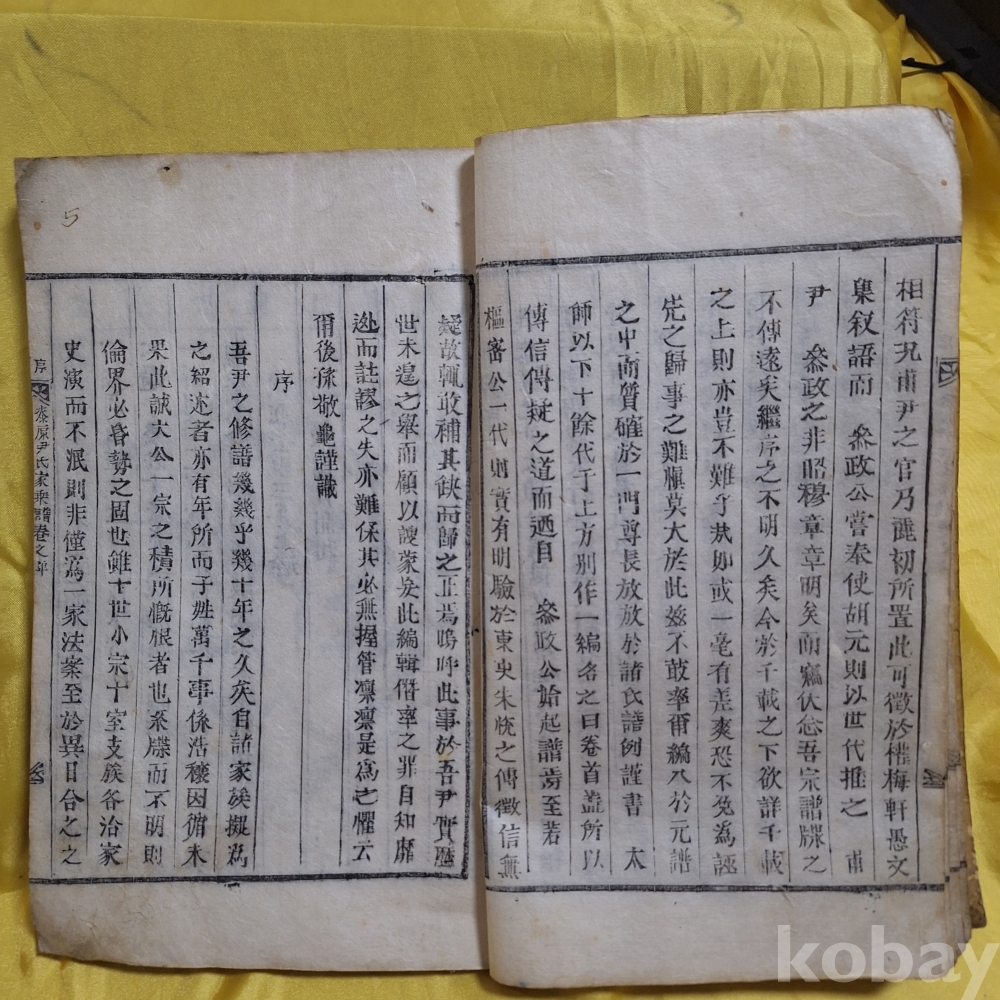 相符況甫尹之官乃麗初所置此可徵於櫟梅軒愚文
集叙語而 叅政公嘗奉使胡元則以世代推之 甫
尹 叅政之非昭穆章章明矣而竊伏念吾宗譜牒之
不傳遠矣繼序之不明久矣今於千載之下欲詳千載
之上則亦豈不難乎哉如或一毫有差爽恐不免為誣
先之歸事之難愼莫大於此玆不敢率爾編入於元譜
之中而質確於一門尊長放放於諸氏譜例謹書 太
師以下十餘代于上方別作一編名之曰卷首蓋所以
傳信傳疑之道而迺自 叅政公始起譜焉至若
樞密公一代則實有明驗於東史朱統之傳徵信無
疑故輒敢補其缺而歸之正焉嗚呼此事於吾尹實曠
世未遑之擧而顧以謏蒙妄此編輯僭率之罪自知靡
逃而註謬之失亦難保其必無握管凛凛是為之懼云
爾後孫敬龜謹識
序
吾尹之修譜幾幾乎幾十年之久矣自諸家族擬為
之紹述者亦有年所而子姓萬千事係浩穰因循未
果此誠大公一宗之積所慨恨者也系牒而不明則
倫界必昏勢之固也雖十世小宗十室支族各治家
史演而不泯則非僅為一家法案至於異日合之之
序
泰原尹氏家乘譜卷之年
5
kobay